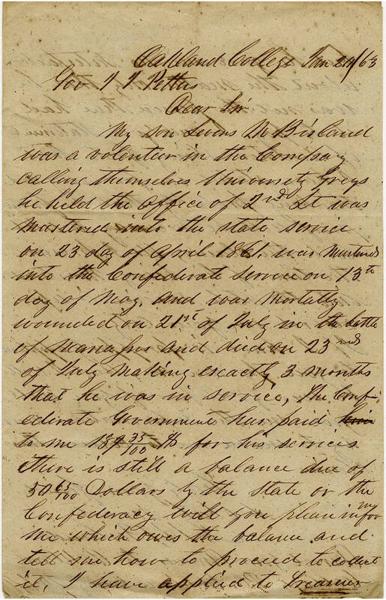 Oakland College Jan 28/63
Gov J J Pettus
Dear Sir
My Son Lewis M Bisland
was a volenteer in the Company
calling themselves University Greys
he held the office of 2nd Lt was
mustered into the state service
on 23 day of April 1861, was mustered
into the Confederate Service on 13th
day of May, and was mortally
wounded on 21st of July in the battle
of Manassas and died on 23rd
of July making exactly 3 months
that he was in service, The Conf-
ederate Government has paid
to me 35/100 $ for his services
there is still a balance due of
50 65/100 Dollars by the State or the
Confederacy will you please inform
me which owes the balance and
tell me how to proceed to collect
it, I have applied to Treasurer